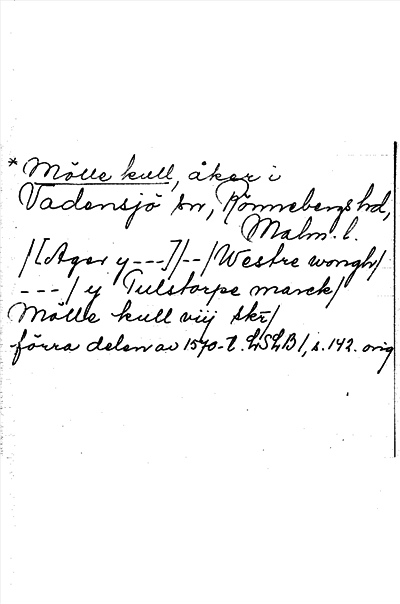 * Mölle kull, åker i
Vadensjö sn, Rönnebergs hd,
Malm. l.
/[Ager y ---]/--/Westre wongh/
---/ y Tulstorpe marck/
Mölle kull viij skr/
förra delen av 1570-t. LSLB/, s. 142. orig